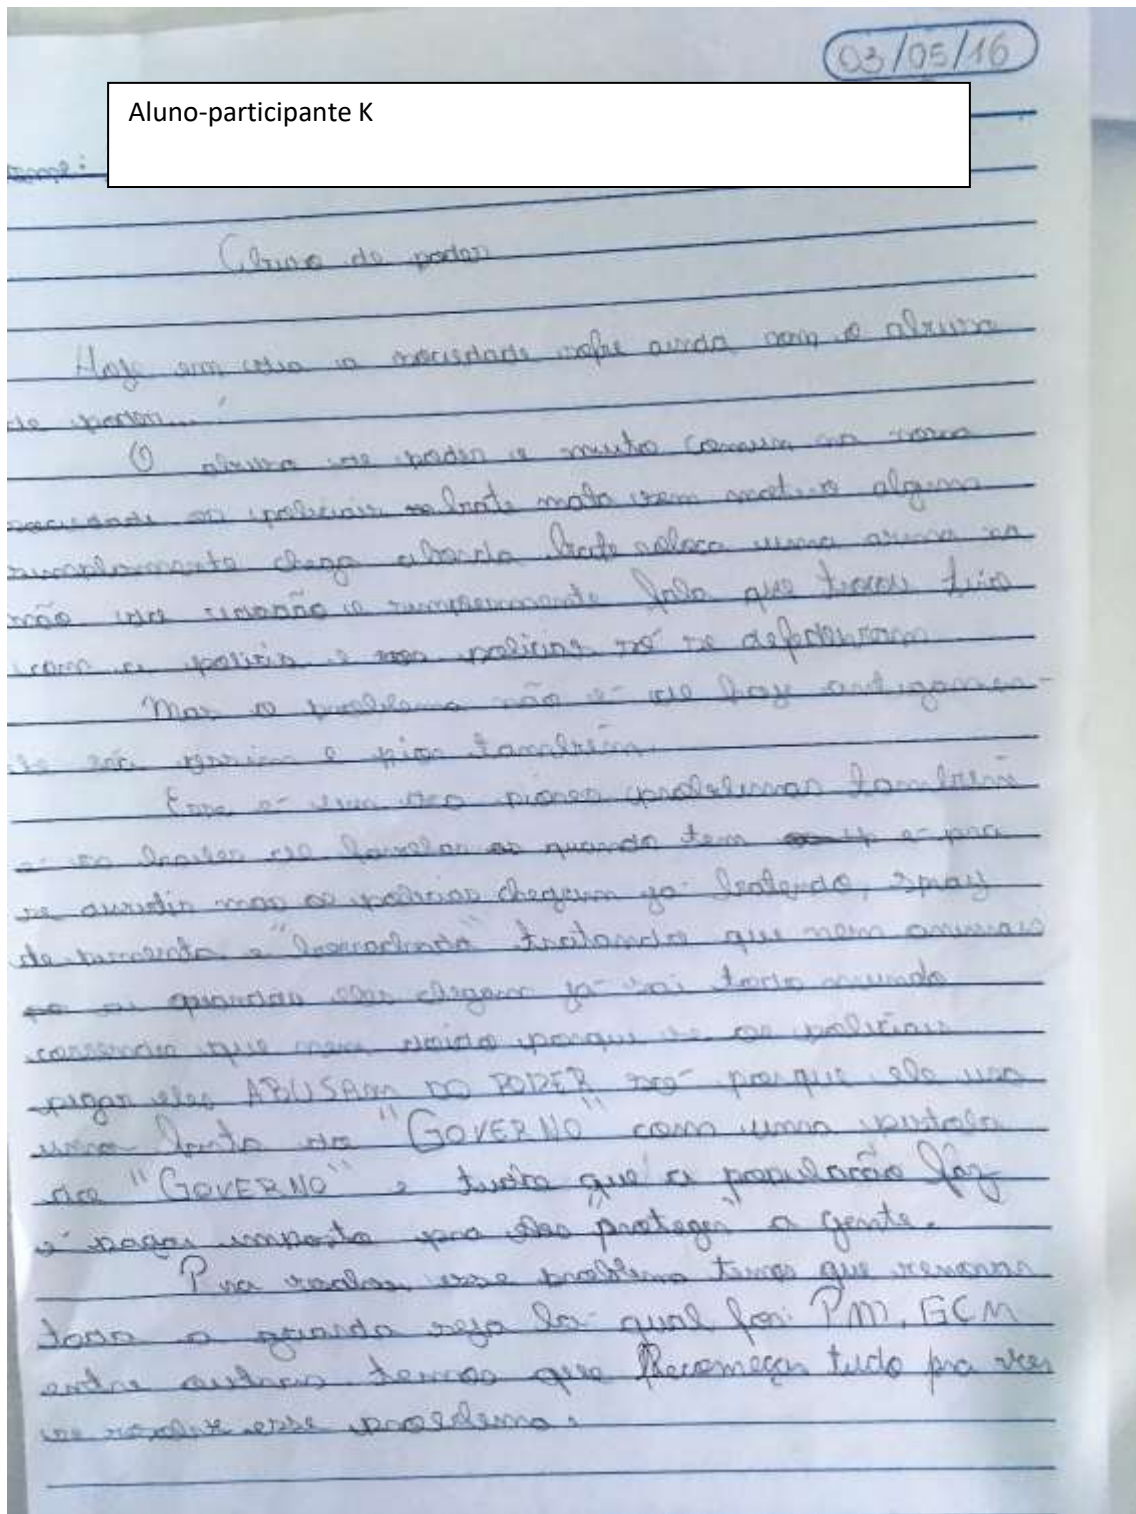 03/05/16
Aluno-participante K
nome:
Abuso de poder
Hoje em dia a sociedade sofre ainda com o abuso
de poder...
O abuso de poder e muito comum na nossa
sociedade os policiais bate mata sem motivo algum
simplismente chega aborda bate coloca uma arma na
mão do cidadão e simplesmente fala que trocou tiro
com a policia e os policias só se defenderam
Mas o problema não é de hoje antigamen-
te era assim e pior também.
Esse é um dos piores problemas também
é os bailes de favelas as quando tem é pra
se curtir mas os policias chegam já batendo, spray
de pimenta e "borrachada" tratando que nem animais
ai quando eles chegam já sai todo mundo
correndo que nem doido porque se os policiais
pegar eles ABUSAM DO PODER só porque ele usa
uma farda do "GOVERNO" com uma pistola
do "GOVERNO" e tudo que a população faz
é pagar imposto pra eles "proteger" a gente.
Pra esse problema temos que renovar
toda a guarda seja lá qual for: PM, GCM
entre outras temos que Recomeçar tudo pra ver
se resolve esse problema.